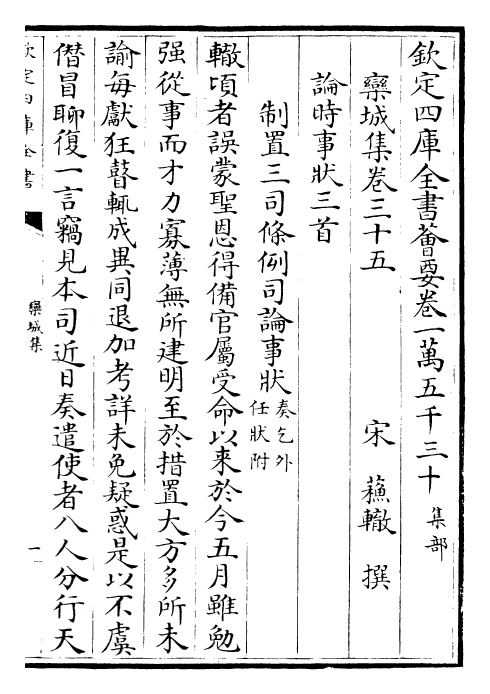 欽定四庫全書薈要卷一萬五千三十 集部
欒城集卷三十五
宋 蘇轍 撰
論時事狀三首
制置三司條例司論事狀 奏乞外任狀附
轍頃者誤蒙聖恩得備官屬受命以来於今五月雖勉
强從事而才力寡薄無所建明至於措置大方多所未
諭毎獻狂瞽輒成異同退加考詳未免疑惑是以不虞
僭冒聊復一言竊見本司近日奏遣使者八人分行天
欽定四庫全書
欒城集
一